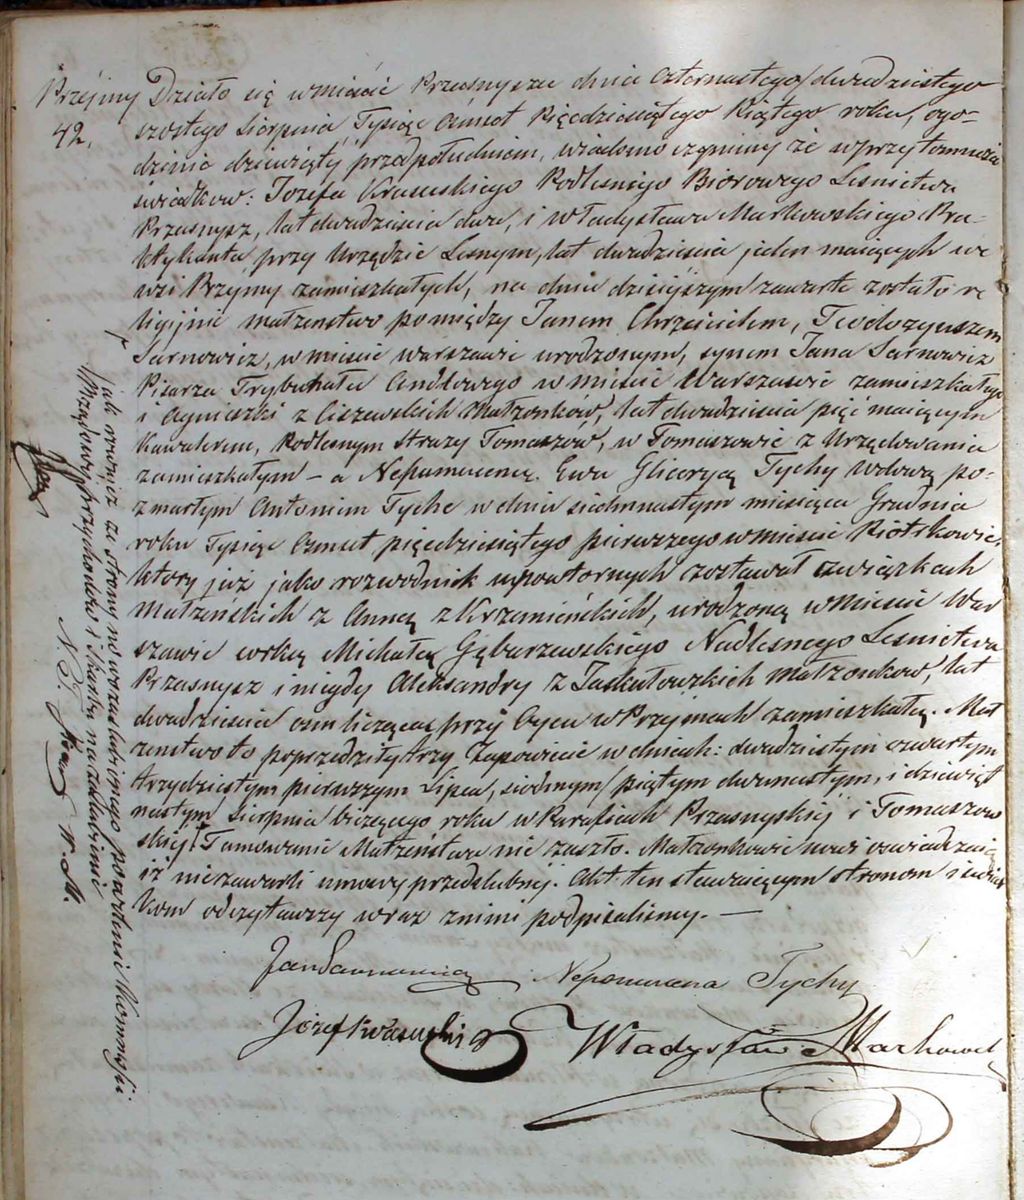 Przejmy
42.
Działo się w mieście Przasnyszu dnia czternastego/dwudziestego
szóstego Sierpnia, Tysiąc ośmset Pięćdziesiątego Piątego roku, ogo-
dzinie dziewiątéj przedpołudniem, wiadomo czynimy że w przytomności
świadków: Józefa Podleśnego Biorowego Leśnictwa
Przasnysz, lat dwadzieścia dwa, i Władysława Markowskiego Pra-
ktykanta przy Urzędzie Leśnym, lat dwadzieścia jeden maiących we
wsi Przejmy zamieszkałych, na dniu dzisiéjszym zawarte zostało re
ligijnie małżeństwo pomiędzy Janem Chrzcicielem, Teodozyuszem
Sarnowicz, w mieście Warszawie urodzonym, synem Jana Sarnowicz
Pisarza Trybunału Cywilnego w mieście Warszawie zamieszkałego
i Agnieszki z Ciszewskich Małżonków, lat dwadzieścia pięć maiącym
Kawalerem, Podleśnym Straży Tomaszów, w Tomaszowie z Urzędowania
zamieszkałym – a Nepomuceną Ewą Gliceryą Tychy wdową po-
zmarłym Antonim Tyche w dniu siedmnastym miesiąca Grudnia
roku Tysiąc ośmset pięćdziesiątego pierwszego w mieście Piotrkowie,
który już jako rozwodnik w powtórnych zostawał związkach
małżeńskich z Anną z Krzemińskich, urodzoną w mieście War
szawie córką Michała Gębarzewskiego Nadleśnego Leśnictwa
Przasnysz i niegdy Aleksandry z Małżonków, lat
dwadzieścia ośm liczącą przy Oycu w Przejmach zamieszkałą. Mał
żeństwo to poprzedziły trzy Zapowiedzie w dniach: dwudziestym czwartym
trzydziestym pierwszym Lipca, siódmym/piątym dwunastym, i dziewięt
nastym Sierpnia bieżącego roku w Parafiach Przasnyskiéj i Tomaszow
skiéj. Tamowanie Małżeństwa nie zaszło. Małżonkowie nowi oświadczaią
iż niezawarli umowy przedślubnéj. Akt ten stawaiącym stronom i świad
kom odczytawszy wraz z nimi podpisaliśmy. —
Jan Sarnowicz Nepomucena Tychy
Józef Władysław Markowski
jako również ze strony nowozaślubionego pozwolenie Kommisji
Rządowéj Przychodów i Skarbu na zaślubienie